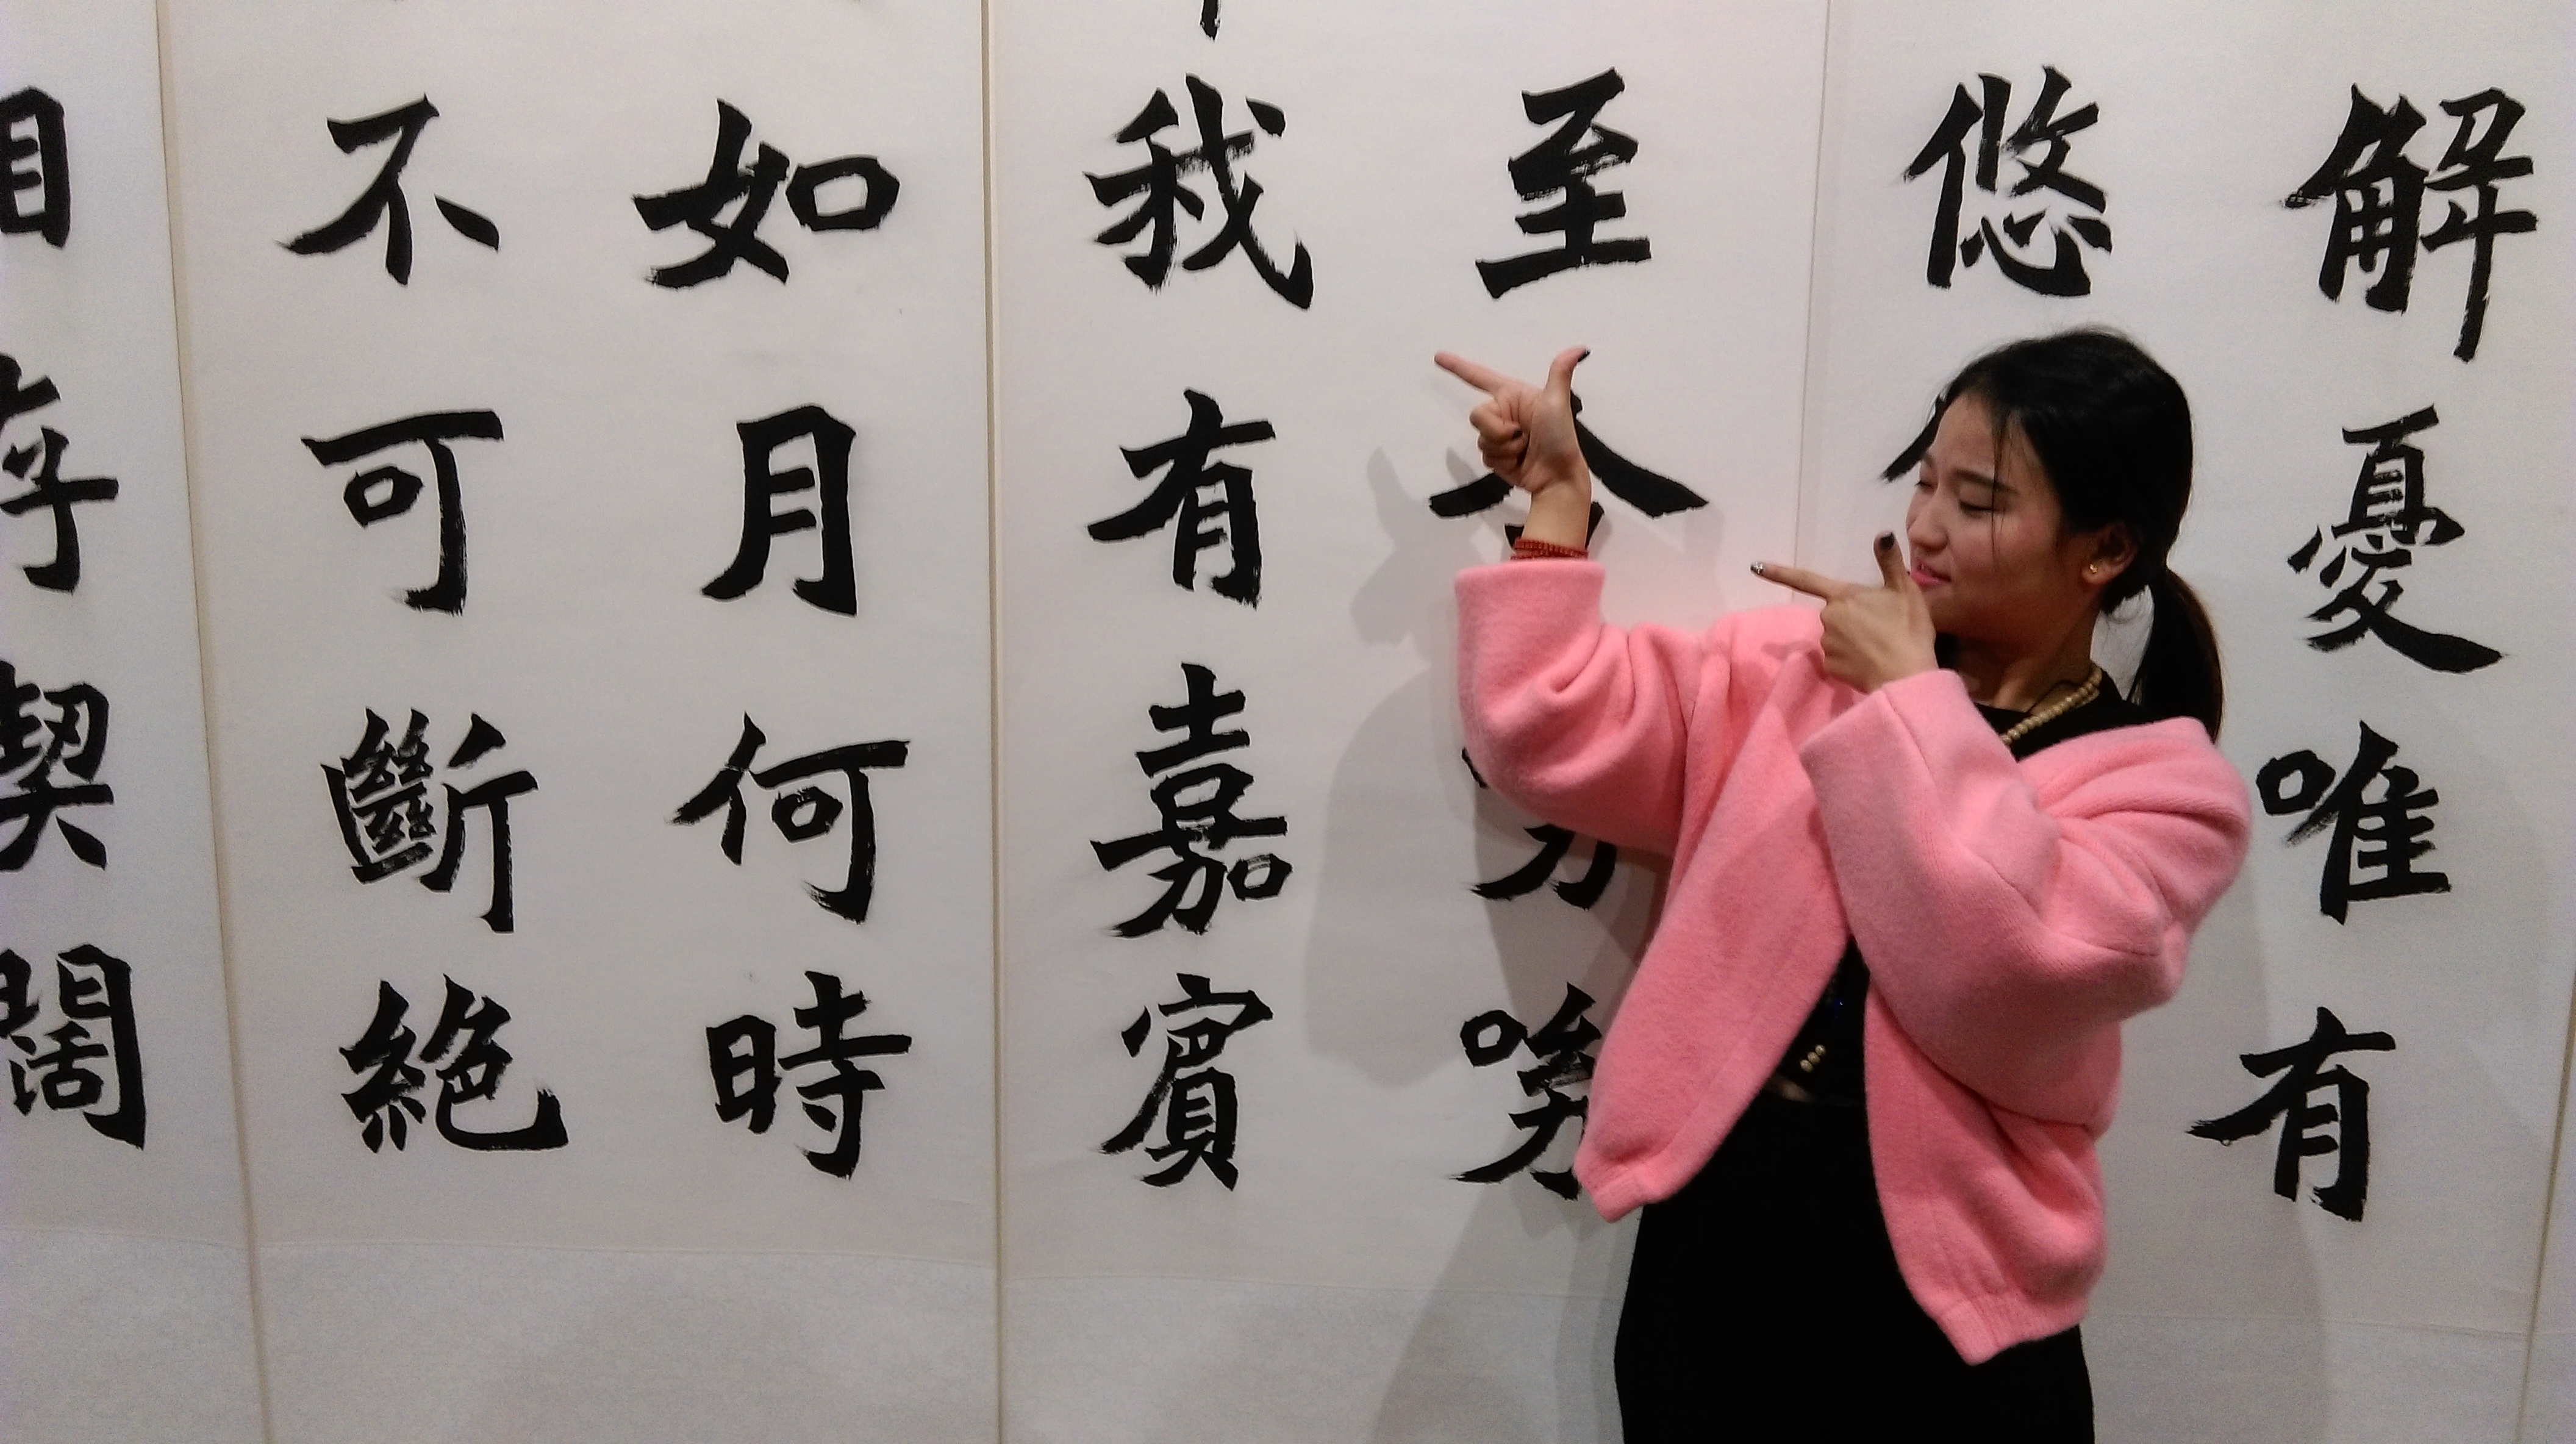 解憂唯有
悠
至今
我有嘉賓
如月何時
不可斷絕
契闊